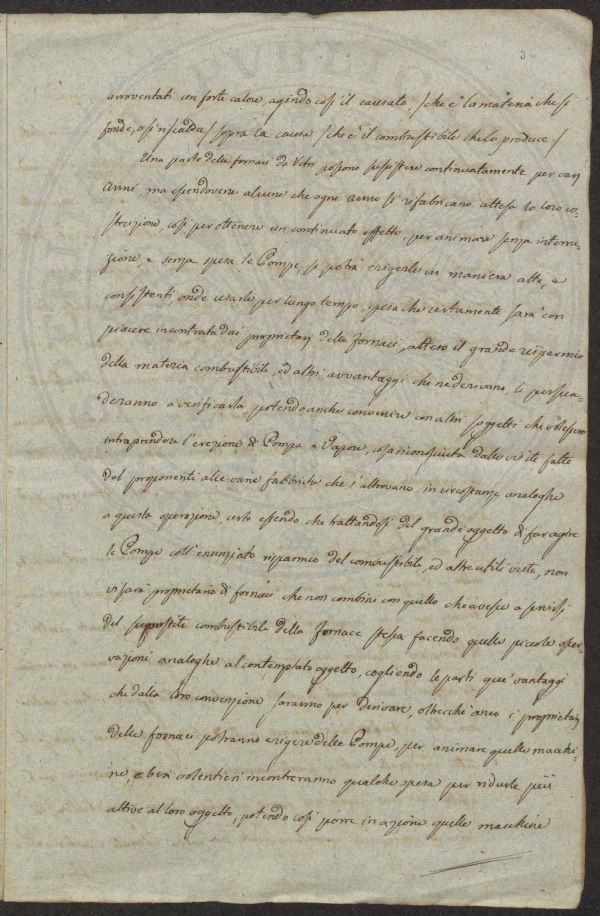 3
arroventati con forte calore, agindo così il causato, /che è la materia che si
fonde, o si riscalda/ sopra la causa /che è il combustibile che lo produce./
Una parte delle fornaci da Vetri possono sussistere continuatamente per varj
Anni, ma essendovene alcune che ogni anno si rifabricano attesa la loro co-
struzione, così per ottenere un continuato effetto, per animare senza interru-
zione, e senza spesa le Pompe, si potrà erigerle in maniera atte, e
consistenti, onde usarle per lungo tempo, spesa che certamente sarà con
piacere incontrata dai proprietarj delle fornaci, atteso il grande risparmio
della materia combustibile, ed altri avvantaggi che ne derivano, li persua-
deranno a verificarla potendo anche convenire con altri soggetti che volessero
intraprendere l'erezione di Pompa a Vapore, cosa riconosciuta dalle visite fatte
dal proponente alle varie fabbriche che s'attrovano in circostanze analoghe
a questa operazione, certo essendo che trattandosi del grande oggetto di far agire
le Pompe coll'enunziato risparmio del combustibile, ed altre utili viste, non
vi sarà proprietario di fornaci che non combini con quello che avesse a servirsi
del superstite combustibile della fornace stessa facendo quelle piccole oper-
vazioni analoghe al contemplato oggetto, cogliendo le parti que' vantaggi
che dalla loro convenzione saranno per derivare, oltrecchè anco i proprietarj
delle fornaci potranno erigere delle Pompe, per animare quelle machi-
ne, e ben volentieri incontreranno qualche spesa per ridurle più
attive al loro oggetto, potendo così porre in azione quelle macchine